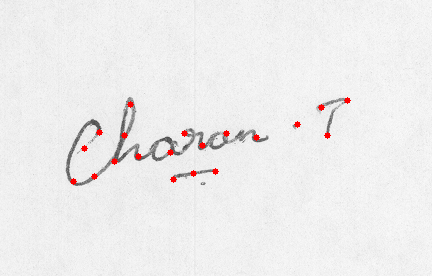 Charan · T